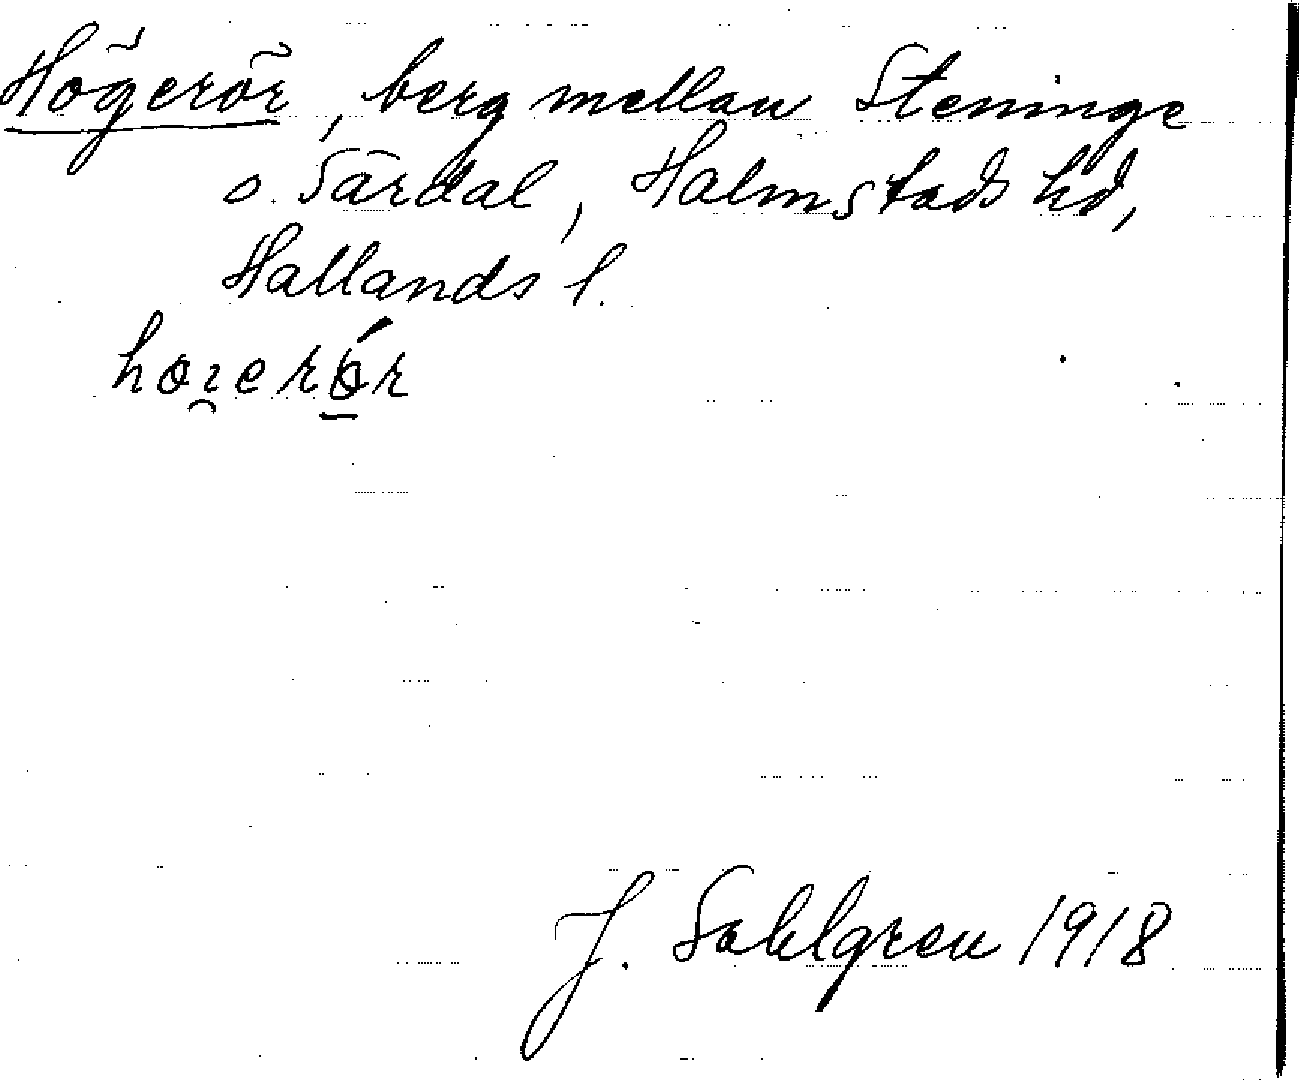 Högerör, berg mellan Steninge
o. Särdal, Halmstads hd,
Hallands l.
J. Sahlgren 1918